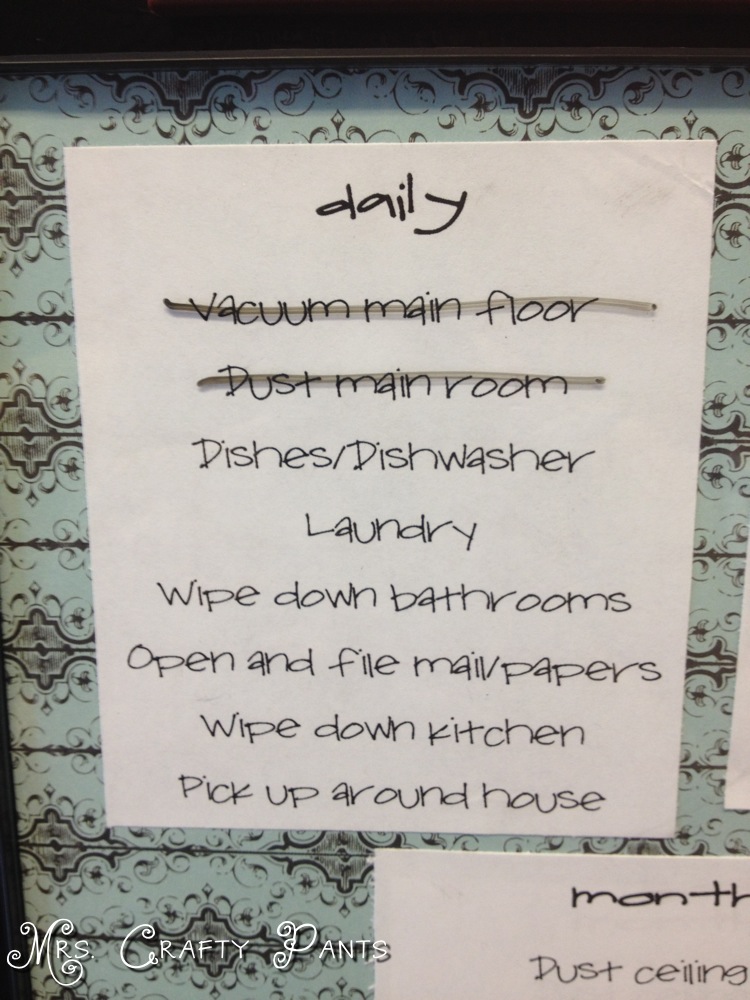 daily
Vacuum main floor
Dust main room
Dishes/Dishwasher
Laundry
Wipe down bathrooms
Open and file mail/papers
Wipe down kitchen
Pick up around house
month
Dust ceiling
Mrs. Crafty Pants